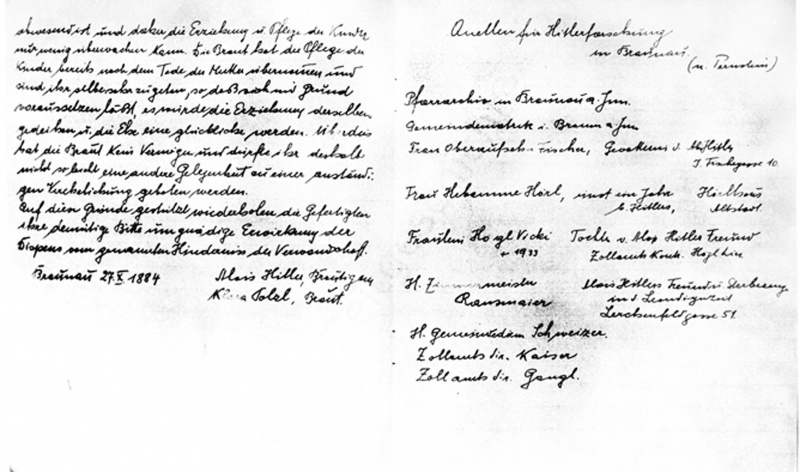 abwesend ist und daher die Erziehung u. Pflege der Kinder
nur wenig überwachen kann. Die Braut hat die Pflege der
Kinder bereits nach dem Tode der Mutter übernommen und
sind ihr selbe sehr zugetan, so daß sich mit Grund
voraussetzen läßt, es würde die Erziehung derselben
gedeihen u. die Ehe eine glückliche werden. Überdeis
hat die Braut kein Vermögen und dürfte ihr deshalb
nicht so leicht eine andere Gelegenheit zu einer anständi
gen Verehelichung geboten werden.
Auf diese Gründe gestützt wiederholen die Gefertigten
ihre demütige Bitte um gnädige Erwirkung der
Dispens vom genannten Hindernisse der Verwandschaft.
Braunau 27.X. 1884 Alois Hitler, Bräutigam
Klara Pölzl, Braut.
Quellen für Hitlerforschung
in Braunau.
Pfarrarchiv in Braunau a. Inn.
Gemeindematrik i. Braun a Inn
Frau Oberaufseh. Fischer,
Frau Hebamme Hörl, einst ein Jahr
b. Hitlers, Altstadt
Fräulein Hogl Vicki Tochter v. Alois Hitlers Freund
+ 1933 Zollamts
H. Zimmermeister Alois Hitlers Freund u.
Ransmaier
Lerchenfeldgasse 51
H. Gemeindearzt Schweizer.
Zollamts dir. Kaiser
Zollamts dir. Gangl.